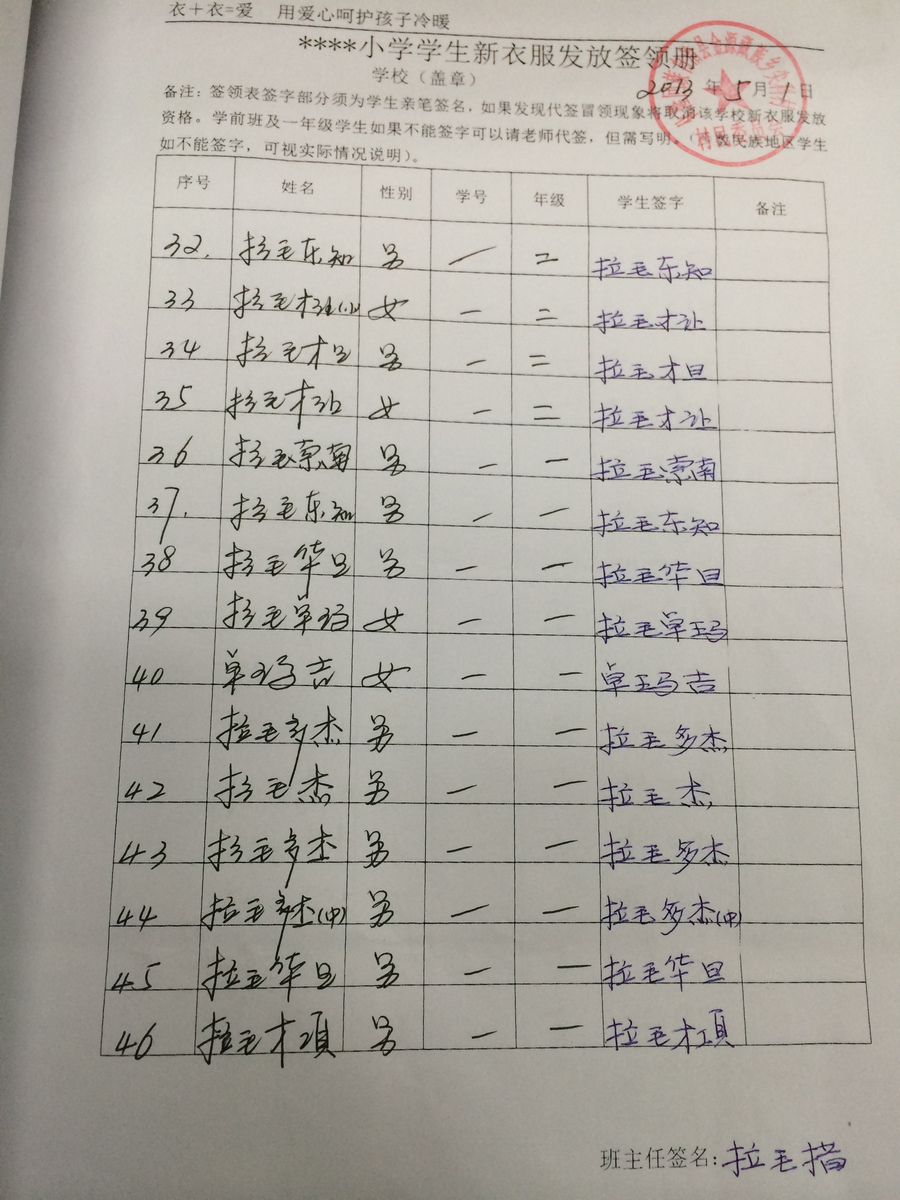 衣+衣=爱 用爱心呵护孩子冷暖
****小学学生新衣服发放签领册
学校(盖章) 2013年5月1日
备注:签领表签字部分须为学生亲笔签名,如果发现代签冒领现象将取消该学校新衣服发放
资格。学前班及一年级学生如果不能签字可以请老师代签,但需写明。(数民族地区学生
如不能签字,可视实际情况说明)。
序号 姓名 性别 学号 年级 学生签字 备注
32. 拉毛东知 男 一 二 拉毛东知
33 拉毛才让(小) 女 一 二 拉毛才让
34 拉毛才旦 男 一 二 拉毛才旦
35 拉毛才让 女 一 二 拉毛才让
36 拉毛索南 男 一 一 拉毛索南
37. 拉毛东知 男 一 一 拉毛东知
38 拉毛华旦 男 一 一 拉毛华旦
39 拉毛卓玛 女 一 一 拉毛卓玛
40 卓玛吉 女 一 一 卓玛吉
41 拉毛多杰 男 一 一 拉毛多杰
42 拉毛杰 男 一 一 拉毛杰
43 拉毛多杰 男 一 一 拉毛多杰
44 拉毛多杰(中) 男 一 一 拉毛多杰(中)
45 拉毛华旦 男 一 一 拉毛华旦
46 拉毛才项 男 一 一 拉毛才项
班主任签名:拉毛措